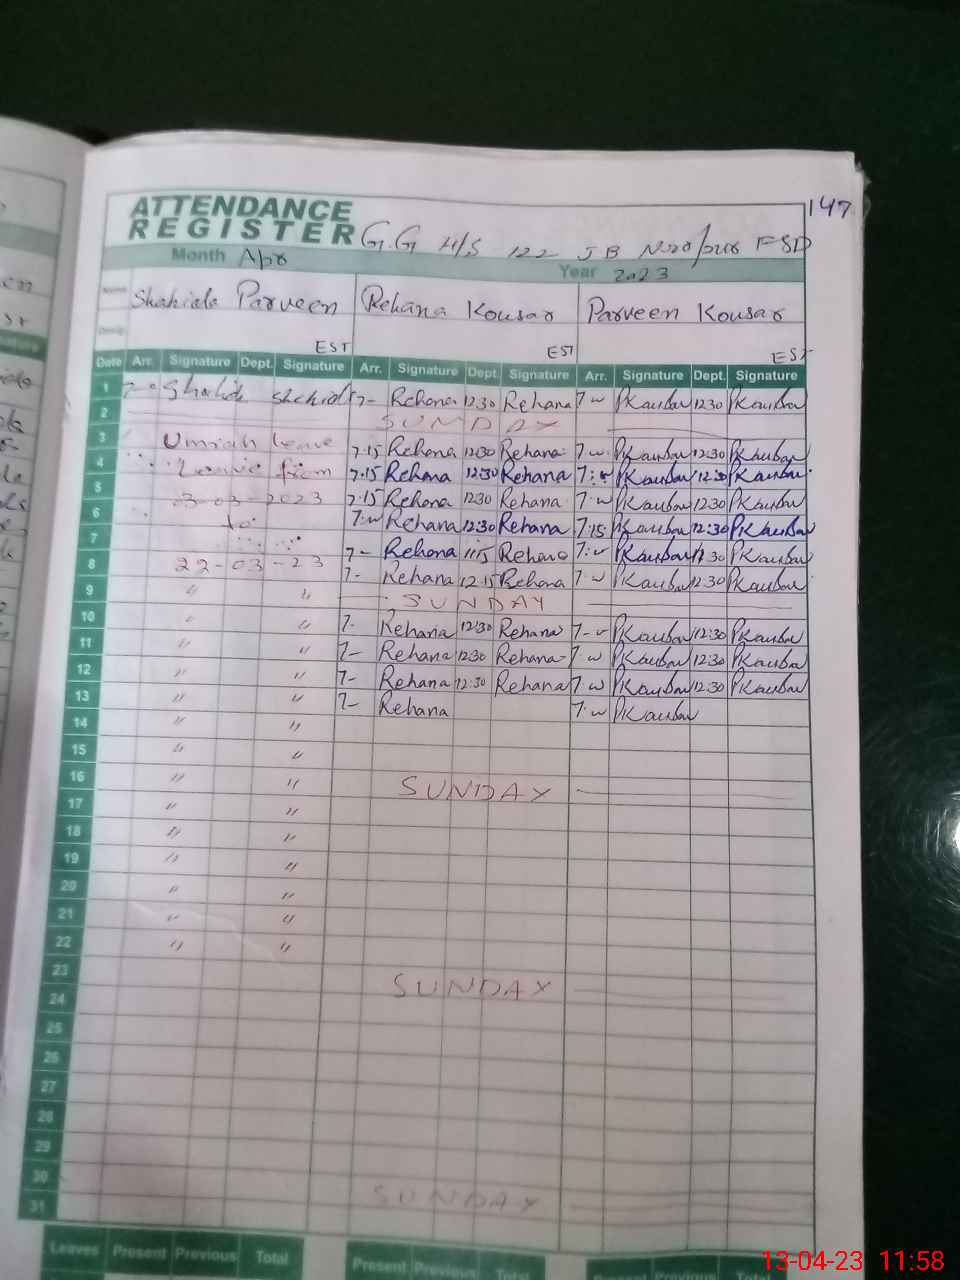 147
ATTENDANCE
REGISTER G.G H/S 122 JB Nurpur FSD
Month Apr Year 2023
Name Shahida Parveen Rehana Kousar Parveen Kousar
Desig. EST EST EST
Date Arr. Signature Dept. Signature Arr. Signature Dept. Signature Arr. Signature Dept. Signature
1 7-0 Shahida Shahida 7- Rehana 12:30 Rehana 7-00 PKausar 12:30 PKausar
2 SUNDAY
3 Umrah leave 7.15 Rehana 12:30 Rehana 7:00 PKausar 12:30 PKausar
4 Leave from 7.15 Rehana 12:30 Rehana 7:00 PKausar 12:30 PKausar
5 03-03-2023 7.15 Rehana 12:30 Rehana 7:00 PKausar 12:30 PKausar
6 to 7:00 Rehana 12:30 Rehana 7:15 PKausar 12:30 PKausar
7 7- Rehana 11:15 Rehana 7:00 PKausar 11:30 PKausar
8 22-03-23 7- Rehana 12:15 Rehana 7:00 PKausar 12:30 PKausar
9 " " SUNDAY
10 " " 7- Rehana 12:30 Rehana 7-00 PKausar 12:30 PKausar
11 " " 7- Rehana 12:30 Rehana 7:00 PKausar 12:30 PKausar
12 " " 7- Rehana 12:30 Rehana 7:00 PKausar 12:30 PKausar
13 " " 7- Rehana 7:00 PKausar
14 " "
15 " "
16 " " SUNDAY
17 " "
18 " "
19 " "
20 " "
21 " "
22 " "
23 SUNDAY
24
25
26
27
28
29
30 SUNDAY
31
Leaves Present Previous Total Present Previous Total Present Previous Total
13-04-23 11:58